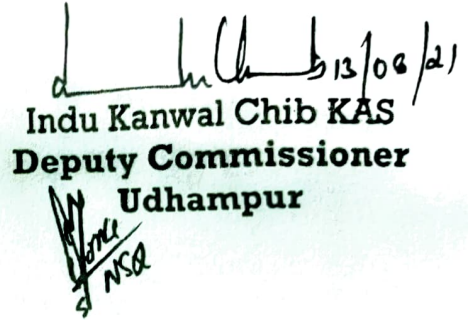 13/08/21
Indu Kanwal Chib KAS
Deputy Commissioner
Udhampur
NSQ